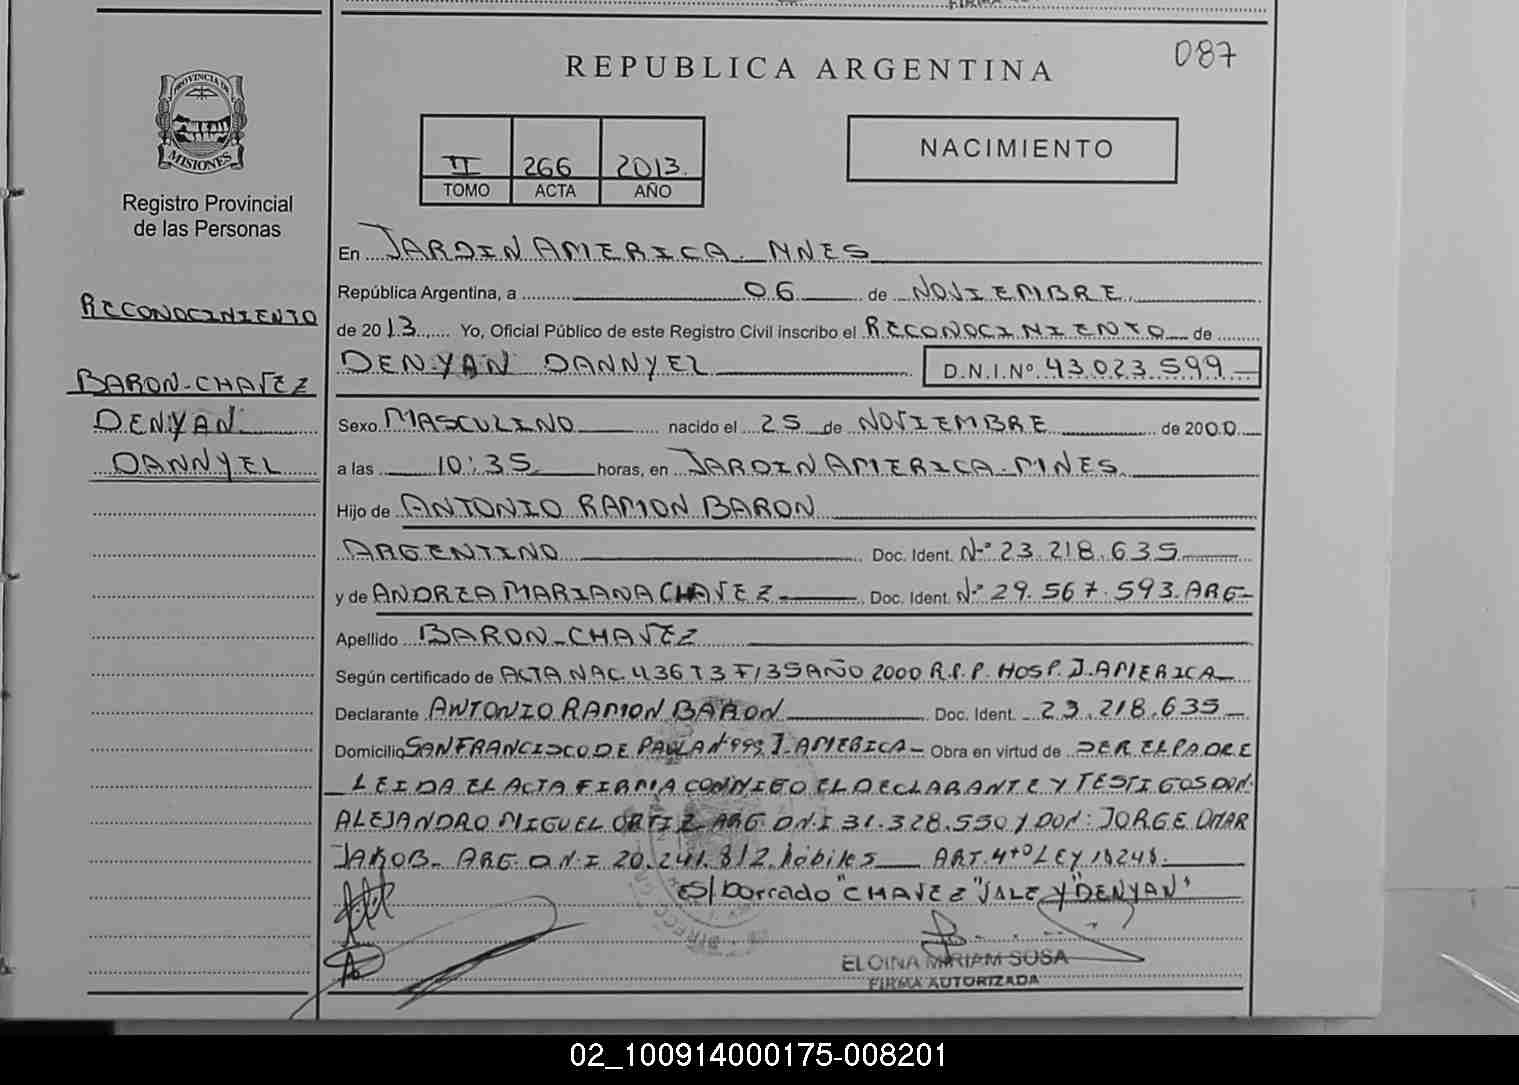 087
REPUBLICA ARGENTINA
PROVINCIA DE
MISIONES
Registro Provincial
de las Personas
II 266 2013.
TOMO ACTA AÑO
NACIMIENTO
RECONOCIMIENTO
BARON-CHAVEZ
DENYAN
DANNYEL
En JARDIN AMERICA. MNES
República Argentina, a 06 de NOVIEMBRE
de 2013 Yo, Oficial Público de este Registro Civil inscribo el RECONOCIMIENTO de
DENYAN DANNYEL D.N.I.Nº 43.023.599
Sexo MASCULINO nacido el 25 de NOVIEMBRE de 2000
a las 10:35 horas, en JARDIN AMERICA. MNES.
Hijo de ANTONIO RAMON BARON
ARGENTINO Doc. Ident. Nº 23.218.635
y de ANDREA MARIANA CHAVEZ Doc. Ident. Nº 29.567.593. ARG
Apellido BARON-CHAVEZ
Según certificado de ACTA NAC. 436 T3 F135 AÑO 2000 R.P.P. HOSP. J. AMERICA
Declarante ANTONIO RAMON BARON Doc. Ident. 23.218.635
Domicilio SAN FRANCISCO DE PAULA Nº 999 J. AMERICA Obra en virtud de SER EL PADRE
LEIDA EL ACTA FIRMA CONMIGO EL DECLARANTE Y TESTIGOS DON:
ALEJANDRO MIGUEL ORTIZ ARG. D.N.I 31.328.550 y DON: JORGE OMAR
JAKOB. ARG. D.N.I. 20.241.812. hábiles ART. 4to LEY 18248.
Es/borrado "CHAVEZ" VALE y "DENYAN"
ELOINA MIRIAM SOSA
FIRMA AUTORIZADA
02_100914000175-008201